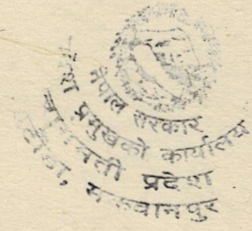 नेपाल सरकार
प्रमुखको कार्यालय
बागमती प्रदेश
हेटौंडा, मकवानपुर